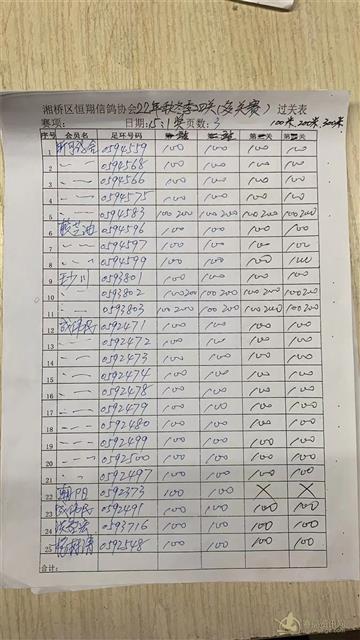 湘桥区恒翔信鸽协会22年秋冬季四关(多关赛)过关表
赛项: 日期: 页数:3 100米,200米,300米
序号 会员名 足环号码 第一关 第二关 第三关 第四关
1 0594559 100 100 100 100
2 〃 0594568 100 100 100 100
3 〃 0594566 100 100 100 100
4 〃 0594575 100 100 100 100
5 〃 0594583 100 200 100 200 100 200 100 200
6 0594596 100 100 100 100
7 〃 0594597 100 100 100 100
8 〃 0594599 100 100 100 100
9 0593801 100 100 100 100
10 〃 0593802 100 200 100 200 100 200 100 200
11 〃 0593803 100 200 100 200 100 200 100 200
12 0592471 100 100 100 100
13 〃 0592472 100 100 100 100
14 〃 0592473 100 100 100 100
15 〃 0592474 100 100 100 100
16 〃 0592478 100 100 100 100
17 〃 0592479 100 100 100 100
18 〃 0592480 100 100 100 100
19 〃 0592499 100 100 100 100
20 〃 0592500 100 100 100 100
21 〃 0592497 100 100 100 100
22 朝阳 0592373 100 100 × ×
23 0592491 100 100 100 100
24 0593716 100 100 100 100
25 0592548 100 100 100 100
合计: